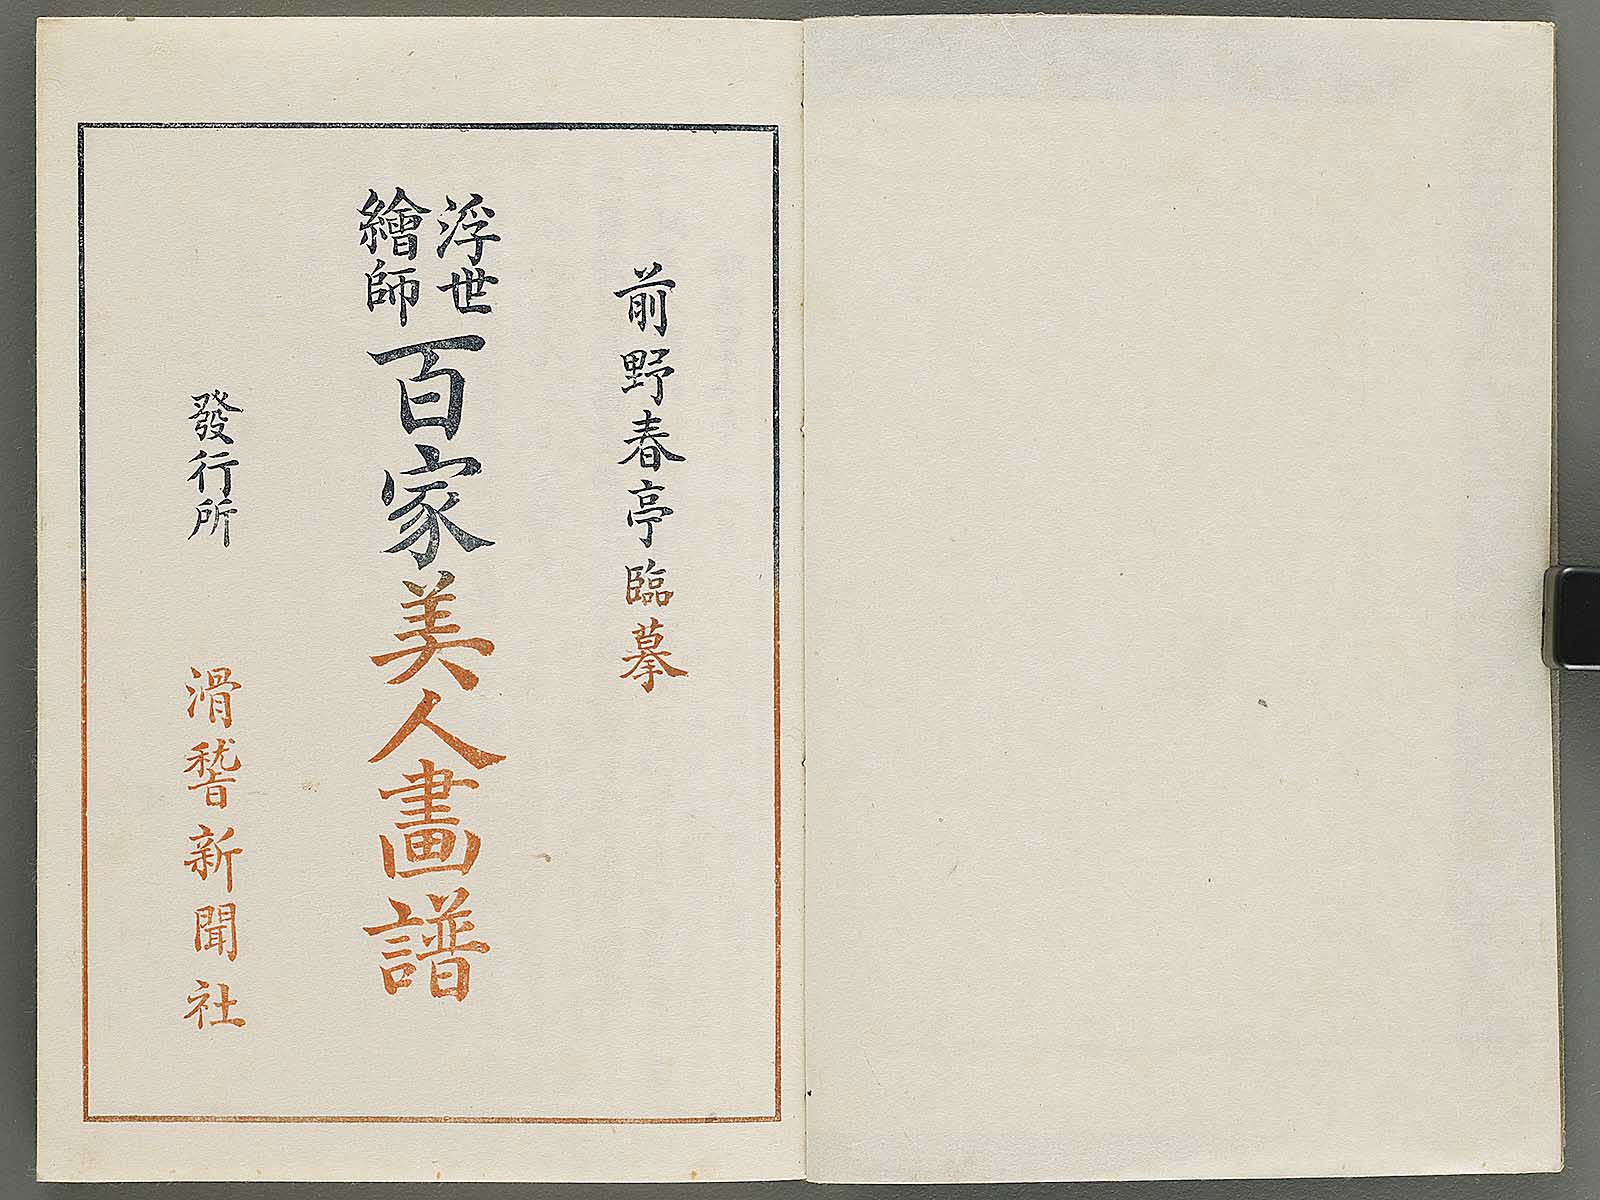 前野春亭臨摹
浮世
繪師
百家美人畫譜
發行所 滑稽新聞社